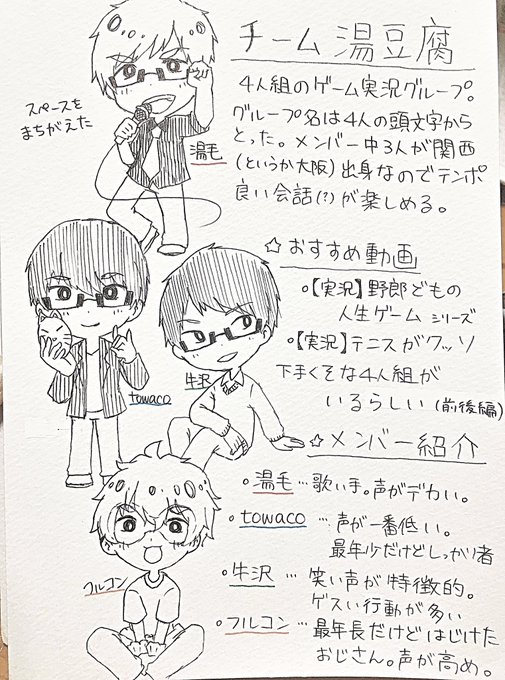 チーム湯豆腐
4人組のゲーム実況グループ。
グループ名は4人の頭文字から
とった。メンバー中3人が関西
(というか大阪)出身なのでテンポ
良い会話(?)が楽しめる。
スペースを
まちがえた
湯毛
☆おすすめ動画
・【実況】野郎どもの
人生ゲーム シリーズ
・【実況】テニスがクッソ
下手くそな4人組が
いるらしい(前後編)
towaco
牛沢
☆メンバー紹介
・湯毛…歌い手。声がデカい。
・towaco…声が一番低い。
最年少だけどしっかり者
・牛沢…笑い声が特徴的。
ゲスい行動が多い
・フルコン…最年長だけどはじけた
おじさん。声が高め。
フルコン